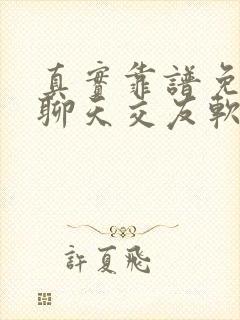 真實靠譜免
聊天交友軟
許夏飛